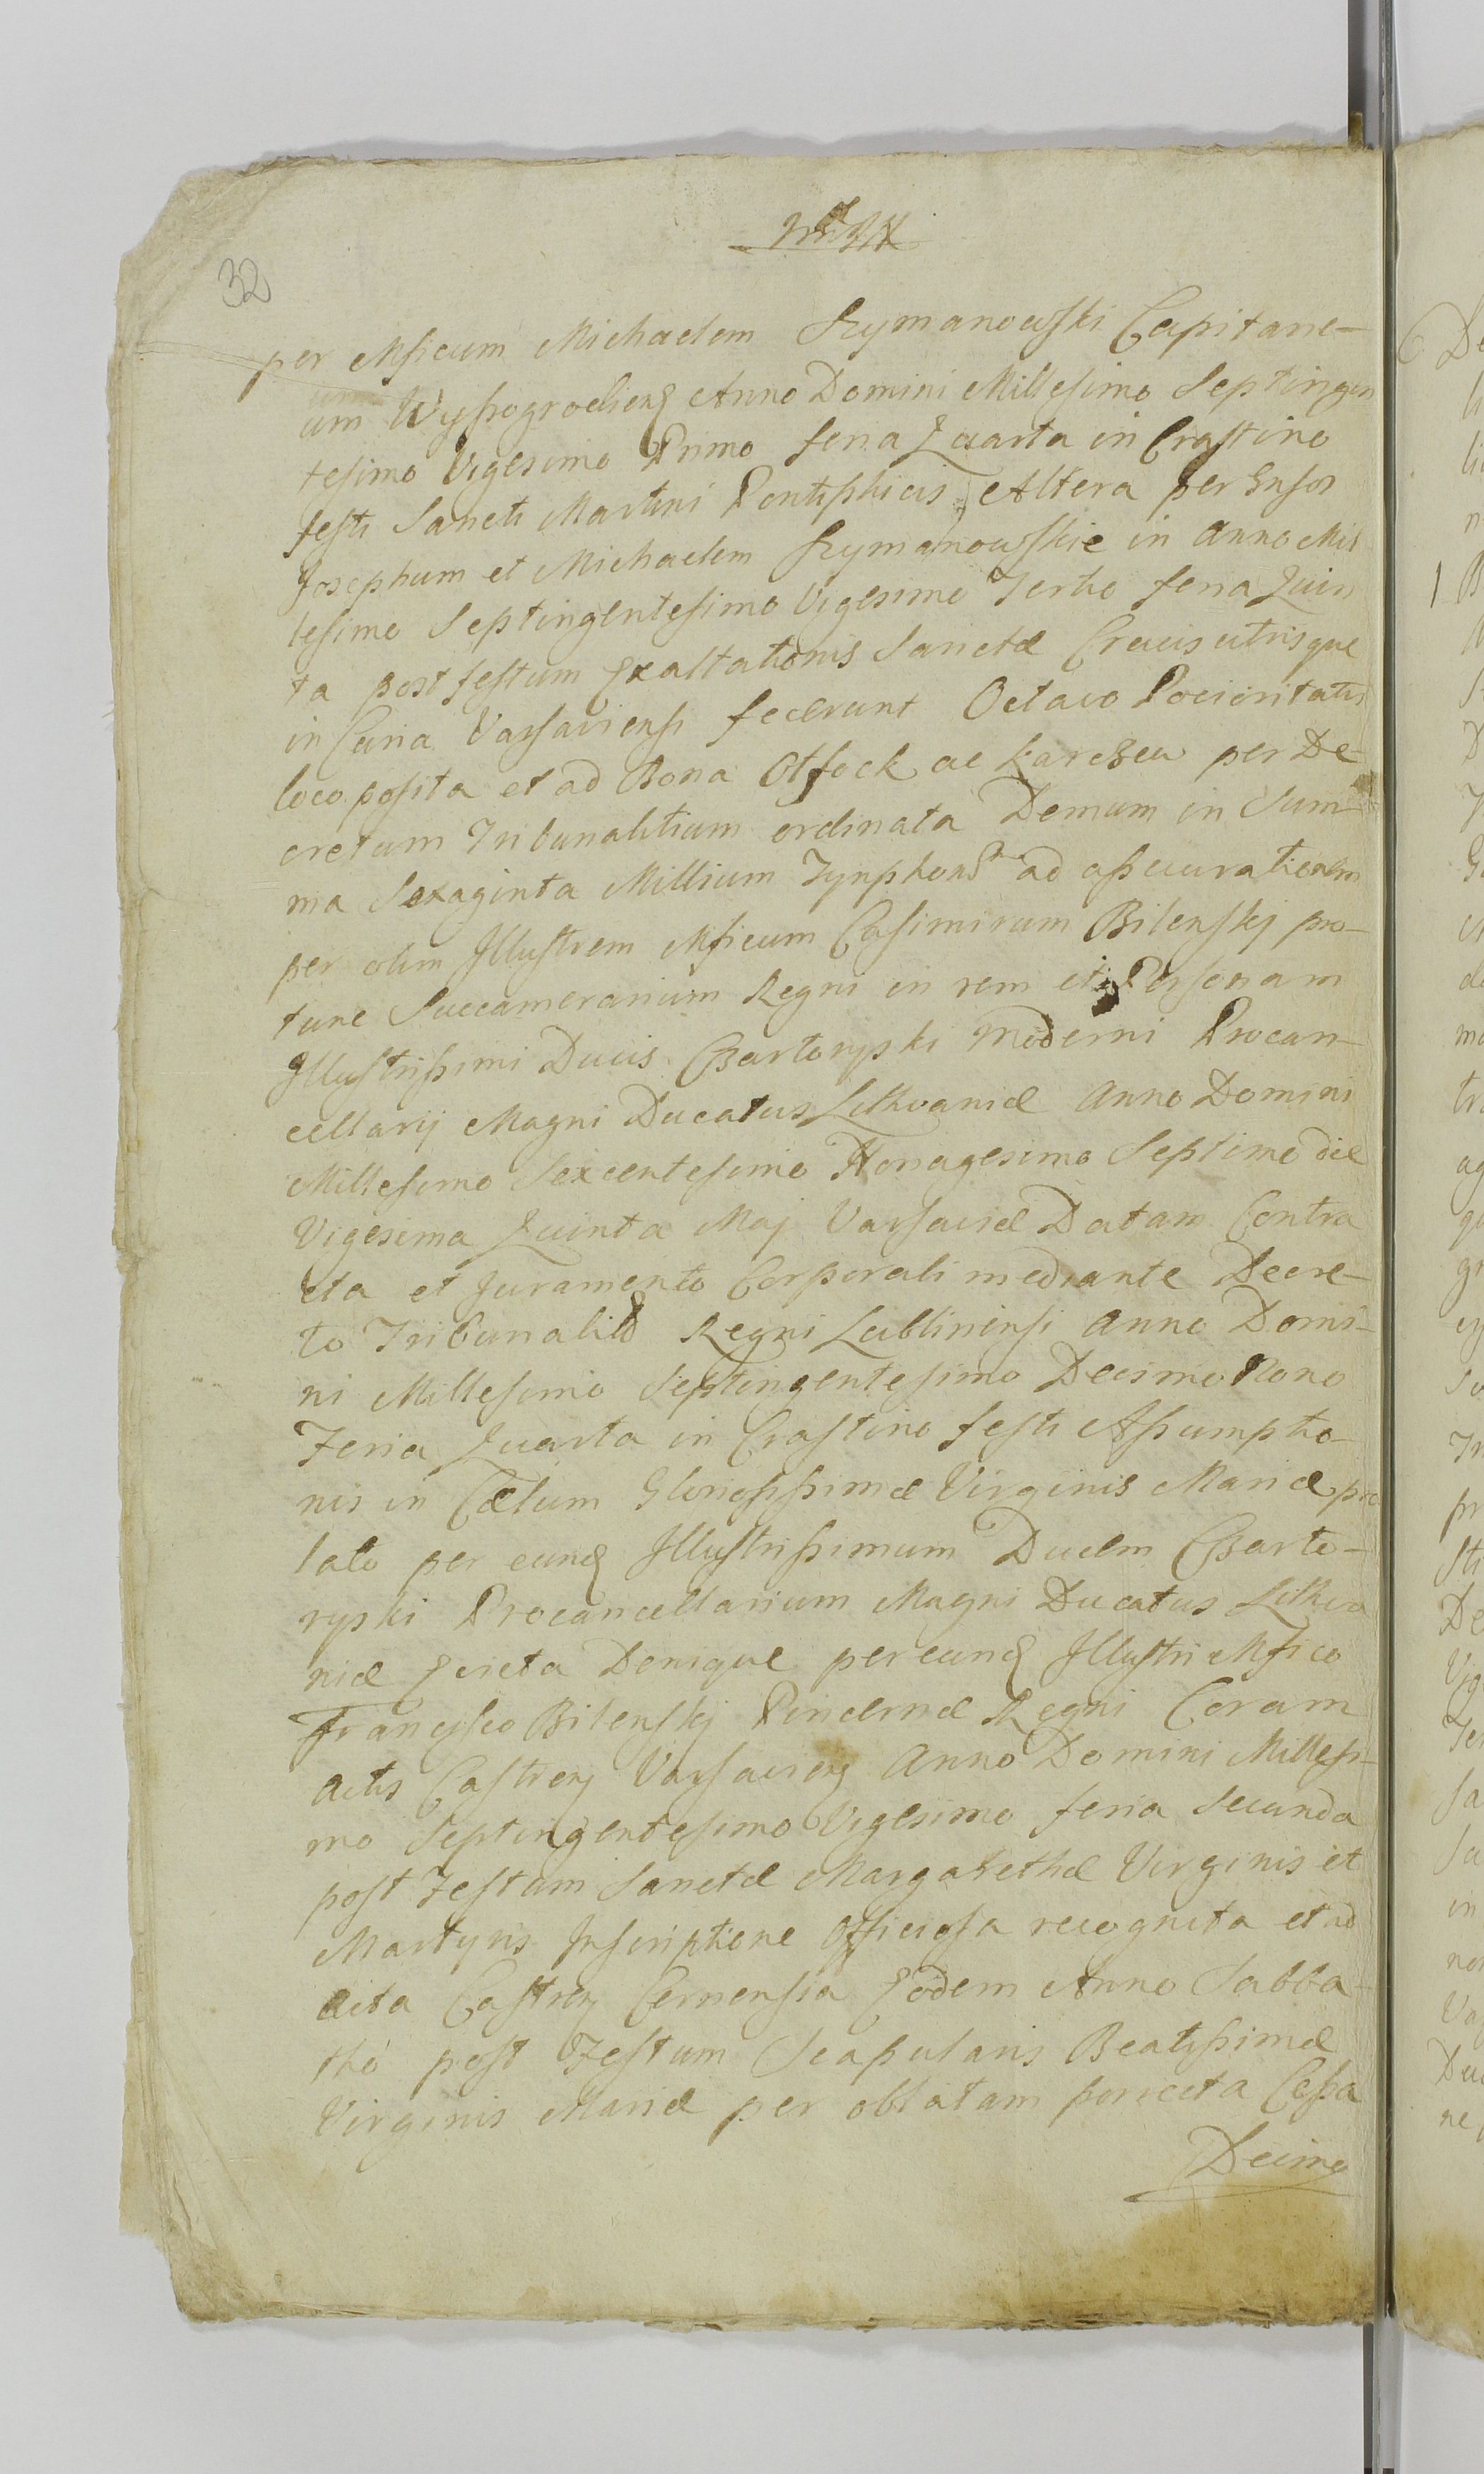 32
per Mficum Michaelem Szymanowski Capitane-
um Wyssogrodiens Anno Domini Millesimo Septingen
tesimo Vigesimo Primo feria Quarta in Crastino
festi Sancti Martini Pontiphicis, Altera per Gnsos
Josephum et Michaelem Szymanowskie in Anno Mil
lesimo Septingentesimo Vigesimo Tertio feria Quin
ta post festum Exaltationis Sanctæ Crucis utrisque
in Curia Varsaviensi fecerunt Octavo Pocioritatis
loco posita et ad Bona Otfock ac Karczew per De-
cretum Tribunalitium ordinata Demum in Sum-
ma Sexaginta Millium Tynphons ad assecurationem
per olim Illustrem Mficum Casimirum Bilenskj pro-
tunc Succamerarium Regni in rem et Personam
Illustrissimi Ducis Czartoryski moderni Procan-
cellarij Magni Ducatus Lithvaniæ Anno Domini
Millesimo Sexcentesimo Nonagesimo Septimo die
Vigesima Quinta Maj Varsaviæ Datam Contra
cta et Juramento Corporali mediante Decre-
to Tribunalits Regni Lublinensi Anno Domi-
ni Millesimo Septingentesimo Decimo Nono
Feria Quarta in Crastino festi Assumptio-
nis in Cælum Gloriosissimæ Virginis Mariæ pro
lato per eund Illustrissimum Ducem Czarto-
ryski Procancellarium Magni Ducatus Lithva
niæ Evicta Denique per eund Illustri Mfico
Francisco Bilenskj Pincernæ Regni Coram
actis Castren Varsavien Anno Domini Millesi-
mo Septingentesimo Vigesimo feria Secunda
post Festum Sanctæ Margarethæ Virginis et
Martyris Inscriptione Officiosa recognita et ad
acta Castren Cernensia Eodem Anno Sabba-
tho post Festum Scapularis Beatissimæ
Virginis Mariæ per oblatam porrecta Cessa
Decimo